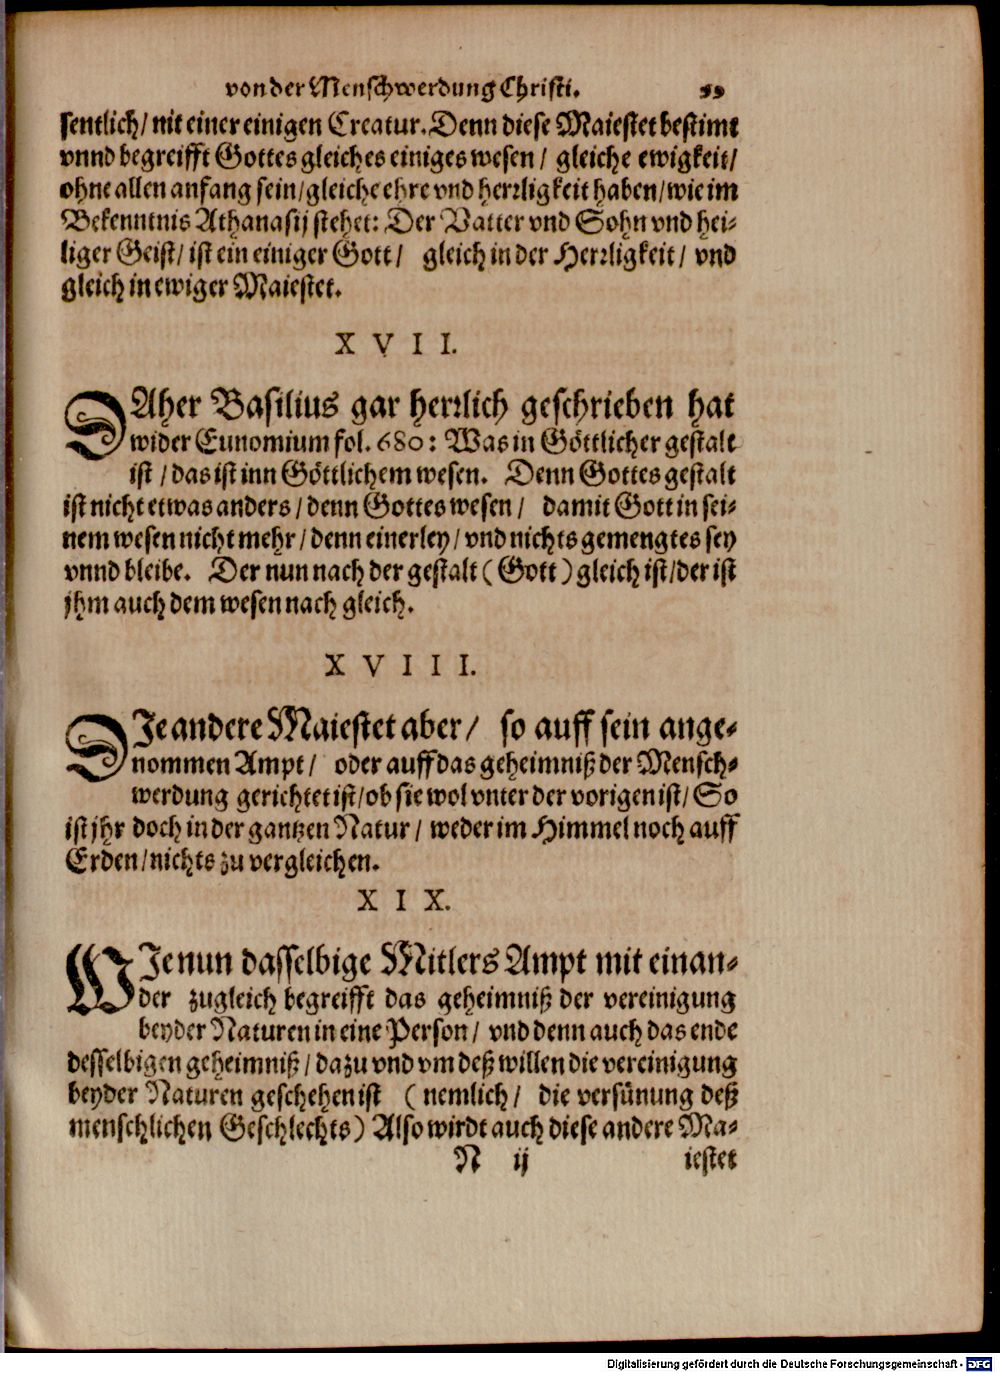 von der Menschwerdung Christi.
sentlich/ nit einer einigen Creatur. Denn diese Maiestet bestimt
vnnd begreifft Gottes gleiches einiges wesen/ gleiche ewigkeit/
ohne allen anfang sein/ gleiche ehre vnd herrligkeit haben/ wie im
Bekenntnis Athanasij stehet: Der Vatter vnd Sohn vnd hei-
liger Geist/ ist ein einiger Gott/ gleich in der Herrligkeit/ vnd
gleich in ewiger Maiestet.
XVII.
DAher Basilius gar herrlich geschrieben hat
wider Eunomium fol. 680: Was in Göttlicher gestalt
ist/ das ist inn Göttlichem wesen. Denn Gottes gestalt
ist nicht etwas anders/ denn Gottes wesen/ damit Gott in sei-
nem wesen nicht mehr/ denn einerley/ vnd nichts gemengtes sey
vnnd bleibe. Der nun nach der gestalt (Gott) gleich ist/ der ist
jhm auch dem wesen nach gleich.
XVIII.
DJe andere Maiestet aber/ so auff sein ange-
nommen Ampt/ oder auff das geheimniß der Mensch-
werdung gerichtet ist/ ob sie wol vnter der vorigen ist/ So
ist jhr doch in der gantzen Natur/ weder im Himmel noch auff
Erden/ nichts zu vergleichen.
XIX.
WJe nun dasselbige Mitlers Ampt mit einan-
der zugleich begreifft das geheimniß der vereinigung
beyder Naturen in eine Person/ vnd denn auch das ende
desselbigen geheimniß/ dazu vnd vm deß willen die vereinigung
beyder Naturen geschehen ist (nemlich/ die versünung deß
menschlichen Geschlechts) Also wirdt auch diese andere Ma-
N ij iestet
Digitalisierung gefördert durch die Deutsche Forschungsgemeinschaft - DFG